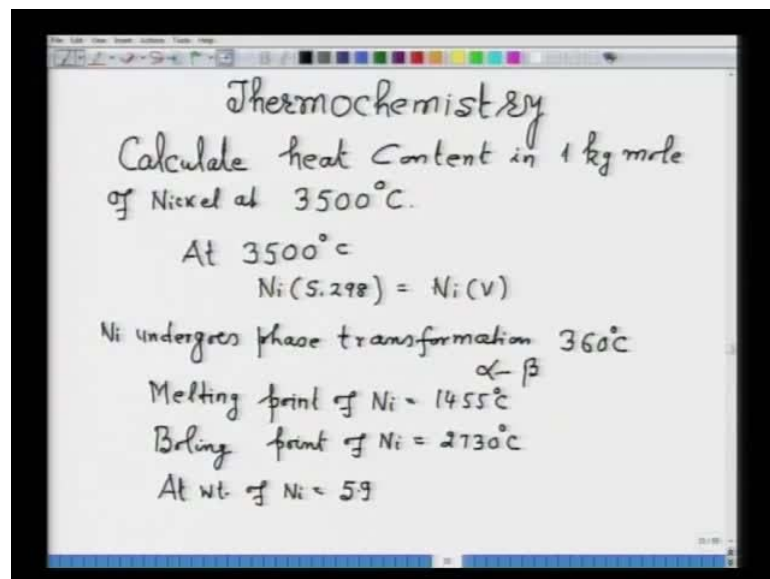 File Edit View Insert Actions Tools Help
Thermochemistry
Calculate heat Content in 1 kg mole
of Nickel at 3500°C.
At 3500°C
Ni(S.298) = Ni(V)
Ni undergoes phase transformation 360°C
α-β
Melting point of Ni = 1455°C
Boling point of Ni = 2730°C
At wt. of Ni = 59